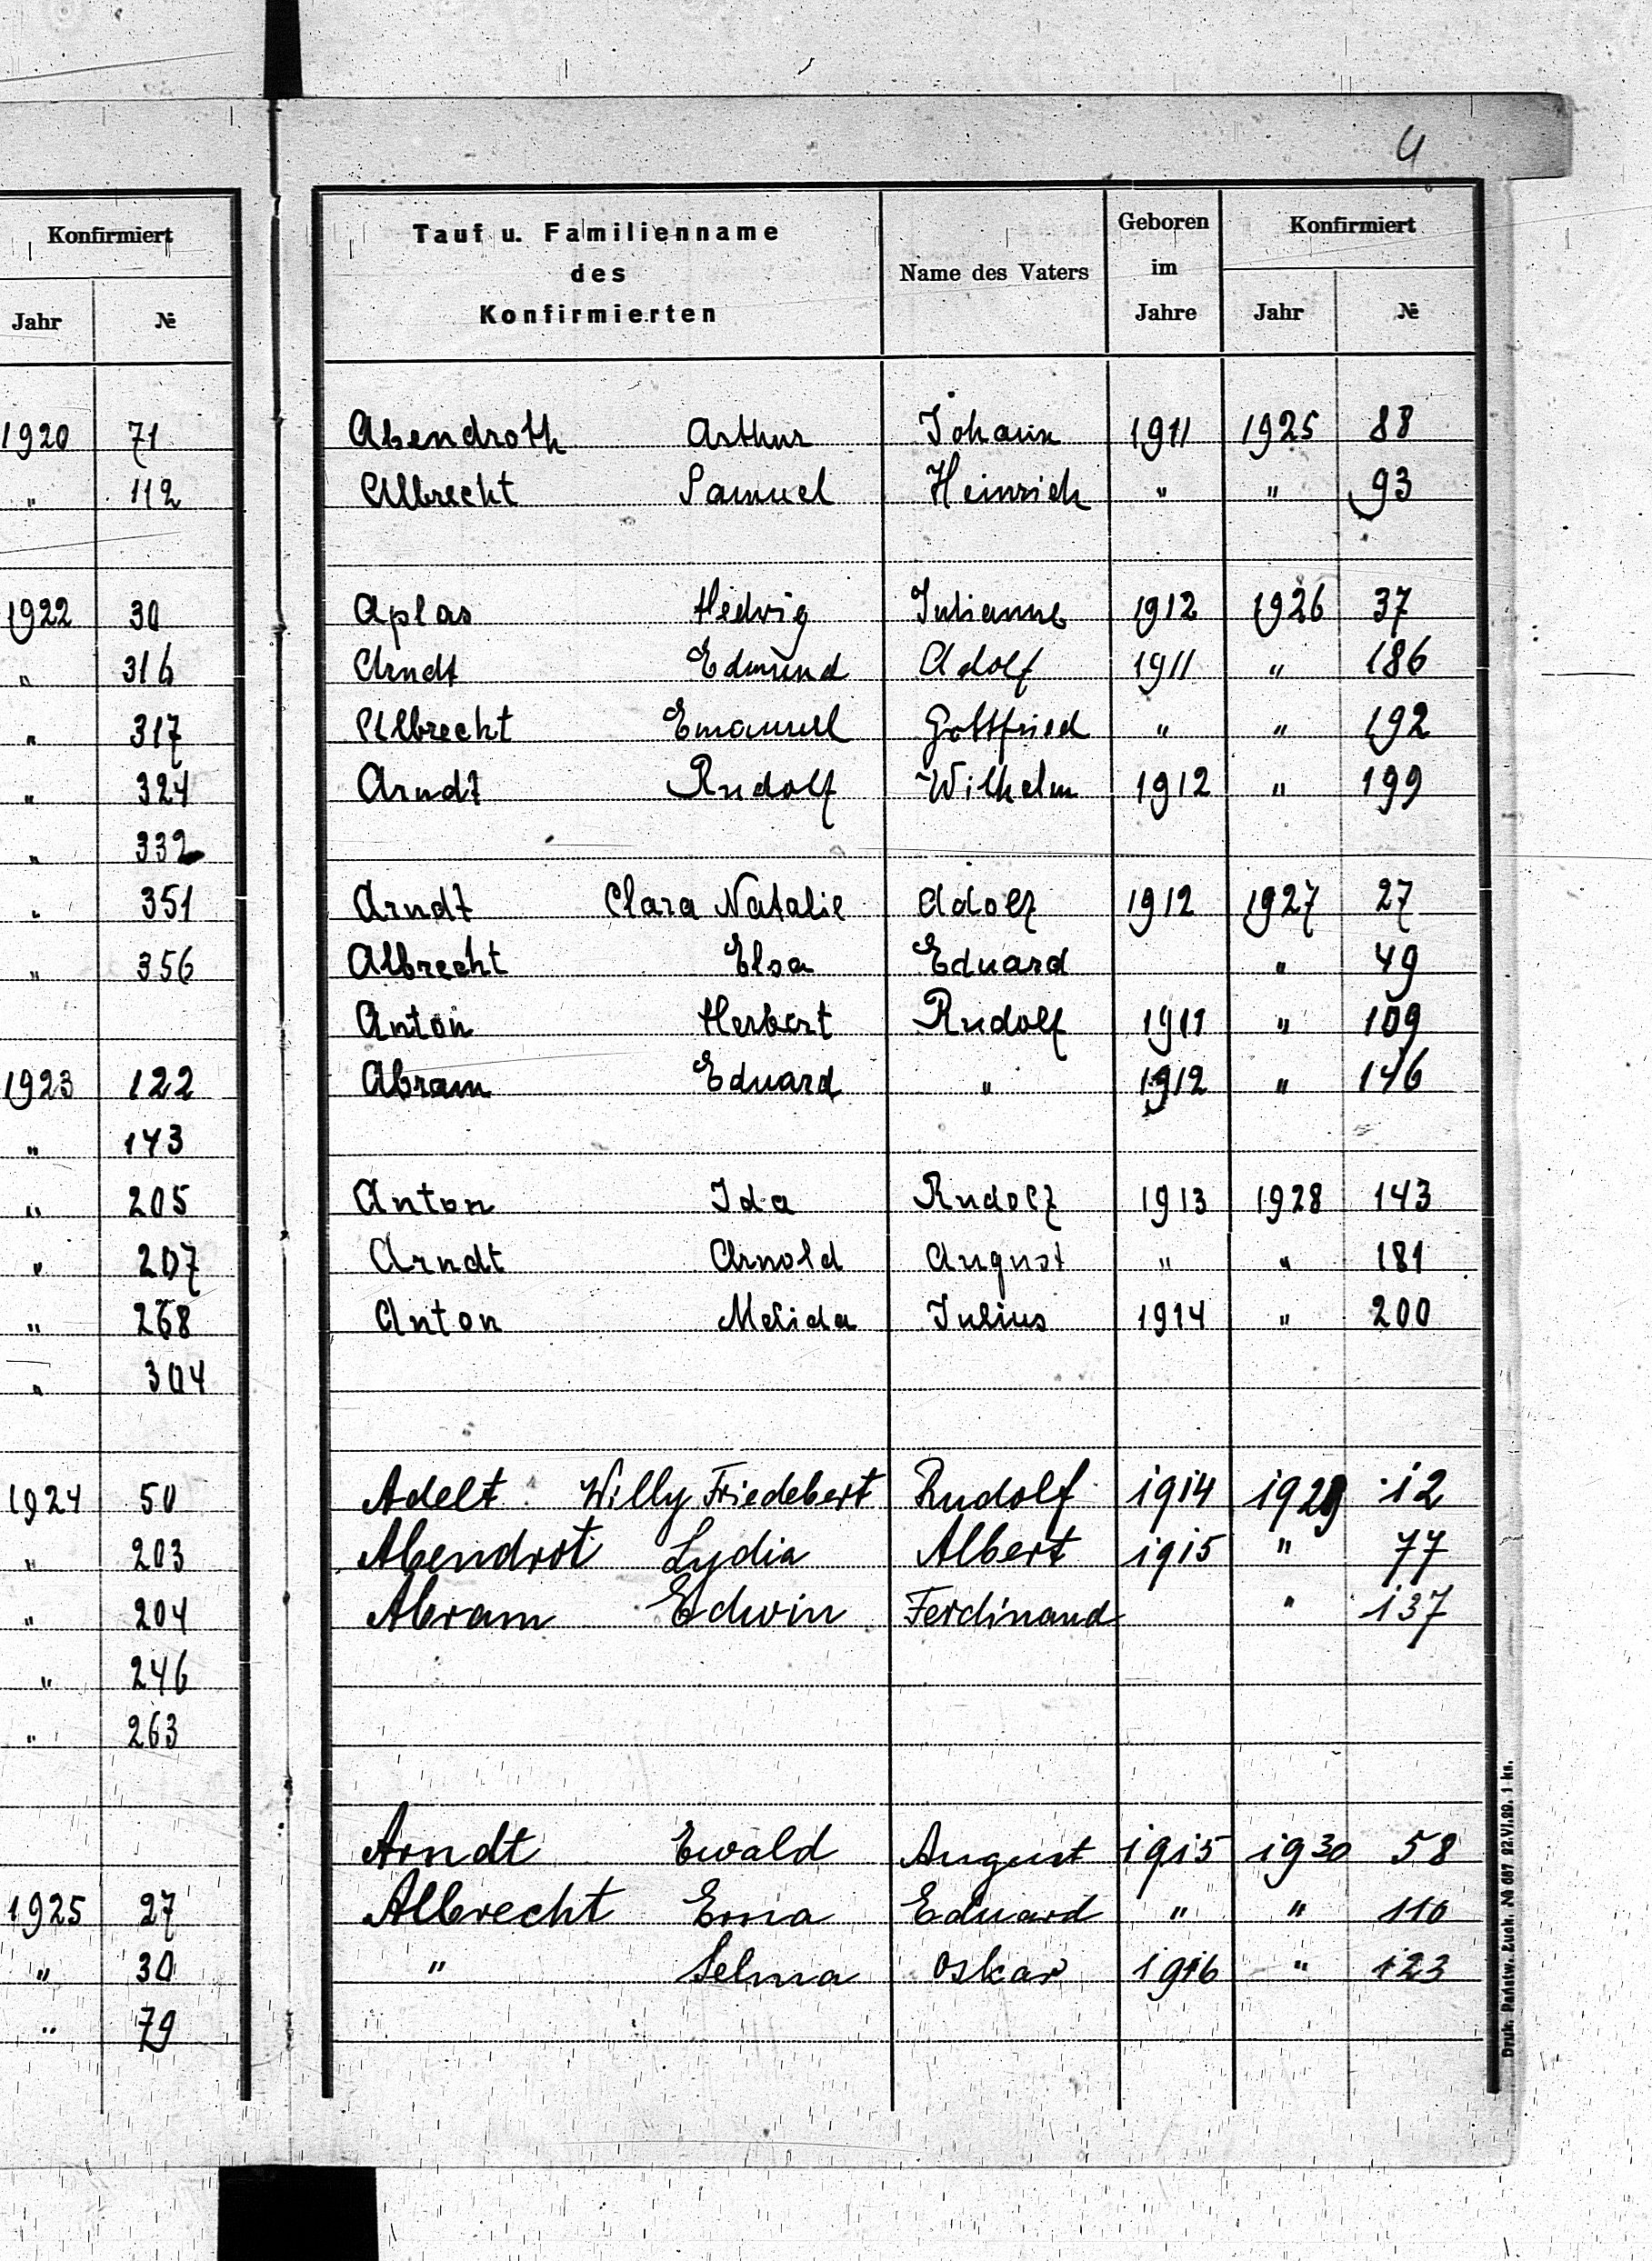 4
Konfirmiert
Jahr №
1920 71
" 112
1922 30
" 316
" 317
" 324
" 332
" 351
" 356
1923 122
" 143
" 205
" 207
" 268
" 304
1924 50
" 203
" 204
" 246
" 263
1925 27
" 30
" 79
Tauf u. Familienname
des
Konfirmierten
Name des Vaters
Geboren
im
Jahre
Konfirmiert
Jahr №
Abendroth Arthur Johann 1911 1925 88
Albrecht Samuel Heinrich " " 93
Aplas Hedwig Julianne 1912 1926 37
Arndt Edmund Adolf 1911 " 186
Albrecht Emanuel Gottfried " " 192
Arndt Rudolf Wilhelm 1912 " 199
Arndt Clara Natalie Adolf 1912 1927 27
Albrecht Elsa Eduard " 49
Anton Herbert Rudolf 1911 " 109
Abram Eduard " 1912 " 146
Anton Ida Rudolf 1913 1928 143
Arndt Arnold August " " 181
Anton Melida Julius 1914 " 200
Adelt Willy Friedebert Rudolf 1914 1929 12
Abendrot Lydia Albert 1915 " 77
Abram Edwin Ferdinand " 137
Arndt Ewald August 1915 1930 58
Albrecht Erna Eduard " " 110
" Selma Oskar 1916 " 123
Druk. Państw. Łuck. № 667. 22.VI.29. 1 kn.